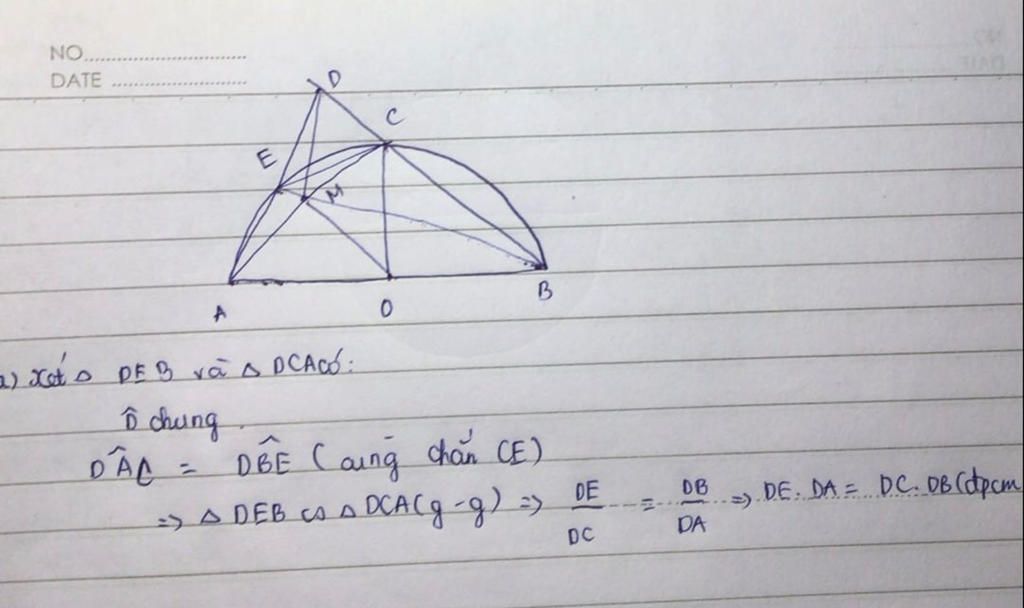 NO..............................
DATE .........................
D
C
E
M
A
O
B
a) Xét Δ DEB và Δ DCA có:
D̂ chung.
DÂC = DB̂E (cùng chắn CE)
=> Δ DEB ∽ Δ DCA (g-g) => DE/DC = DB/DA => DE. DA = DC. DB (đpcm